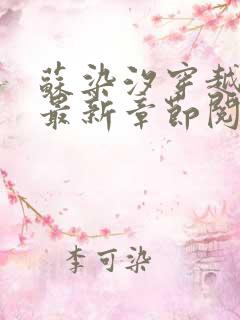 蘇染汐穿越
最新章節閱
李可染